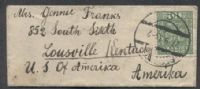 Mrs. Gennie Franks
852 South Sikth
Lousville Kentacky
U. S Of Amerika
Amerika